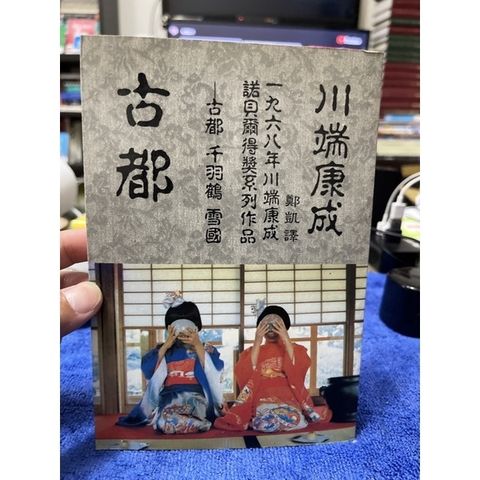 川端康成
鄭凱譯
一九六八年川端康成
諾貝爾得獎系列作品
—古都 千羽鶴 雪國
古都